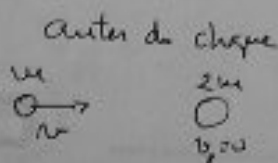 antes do choque
m 2m
v v₂=0